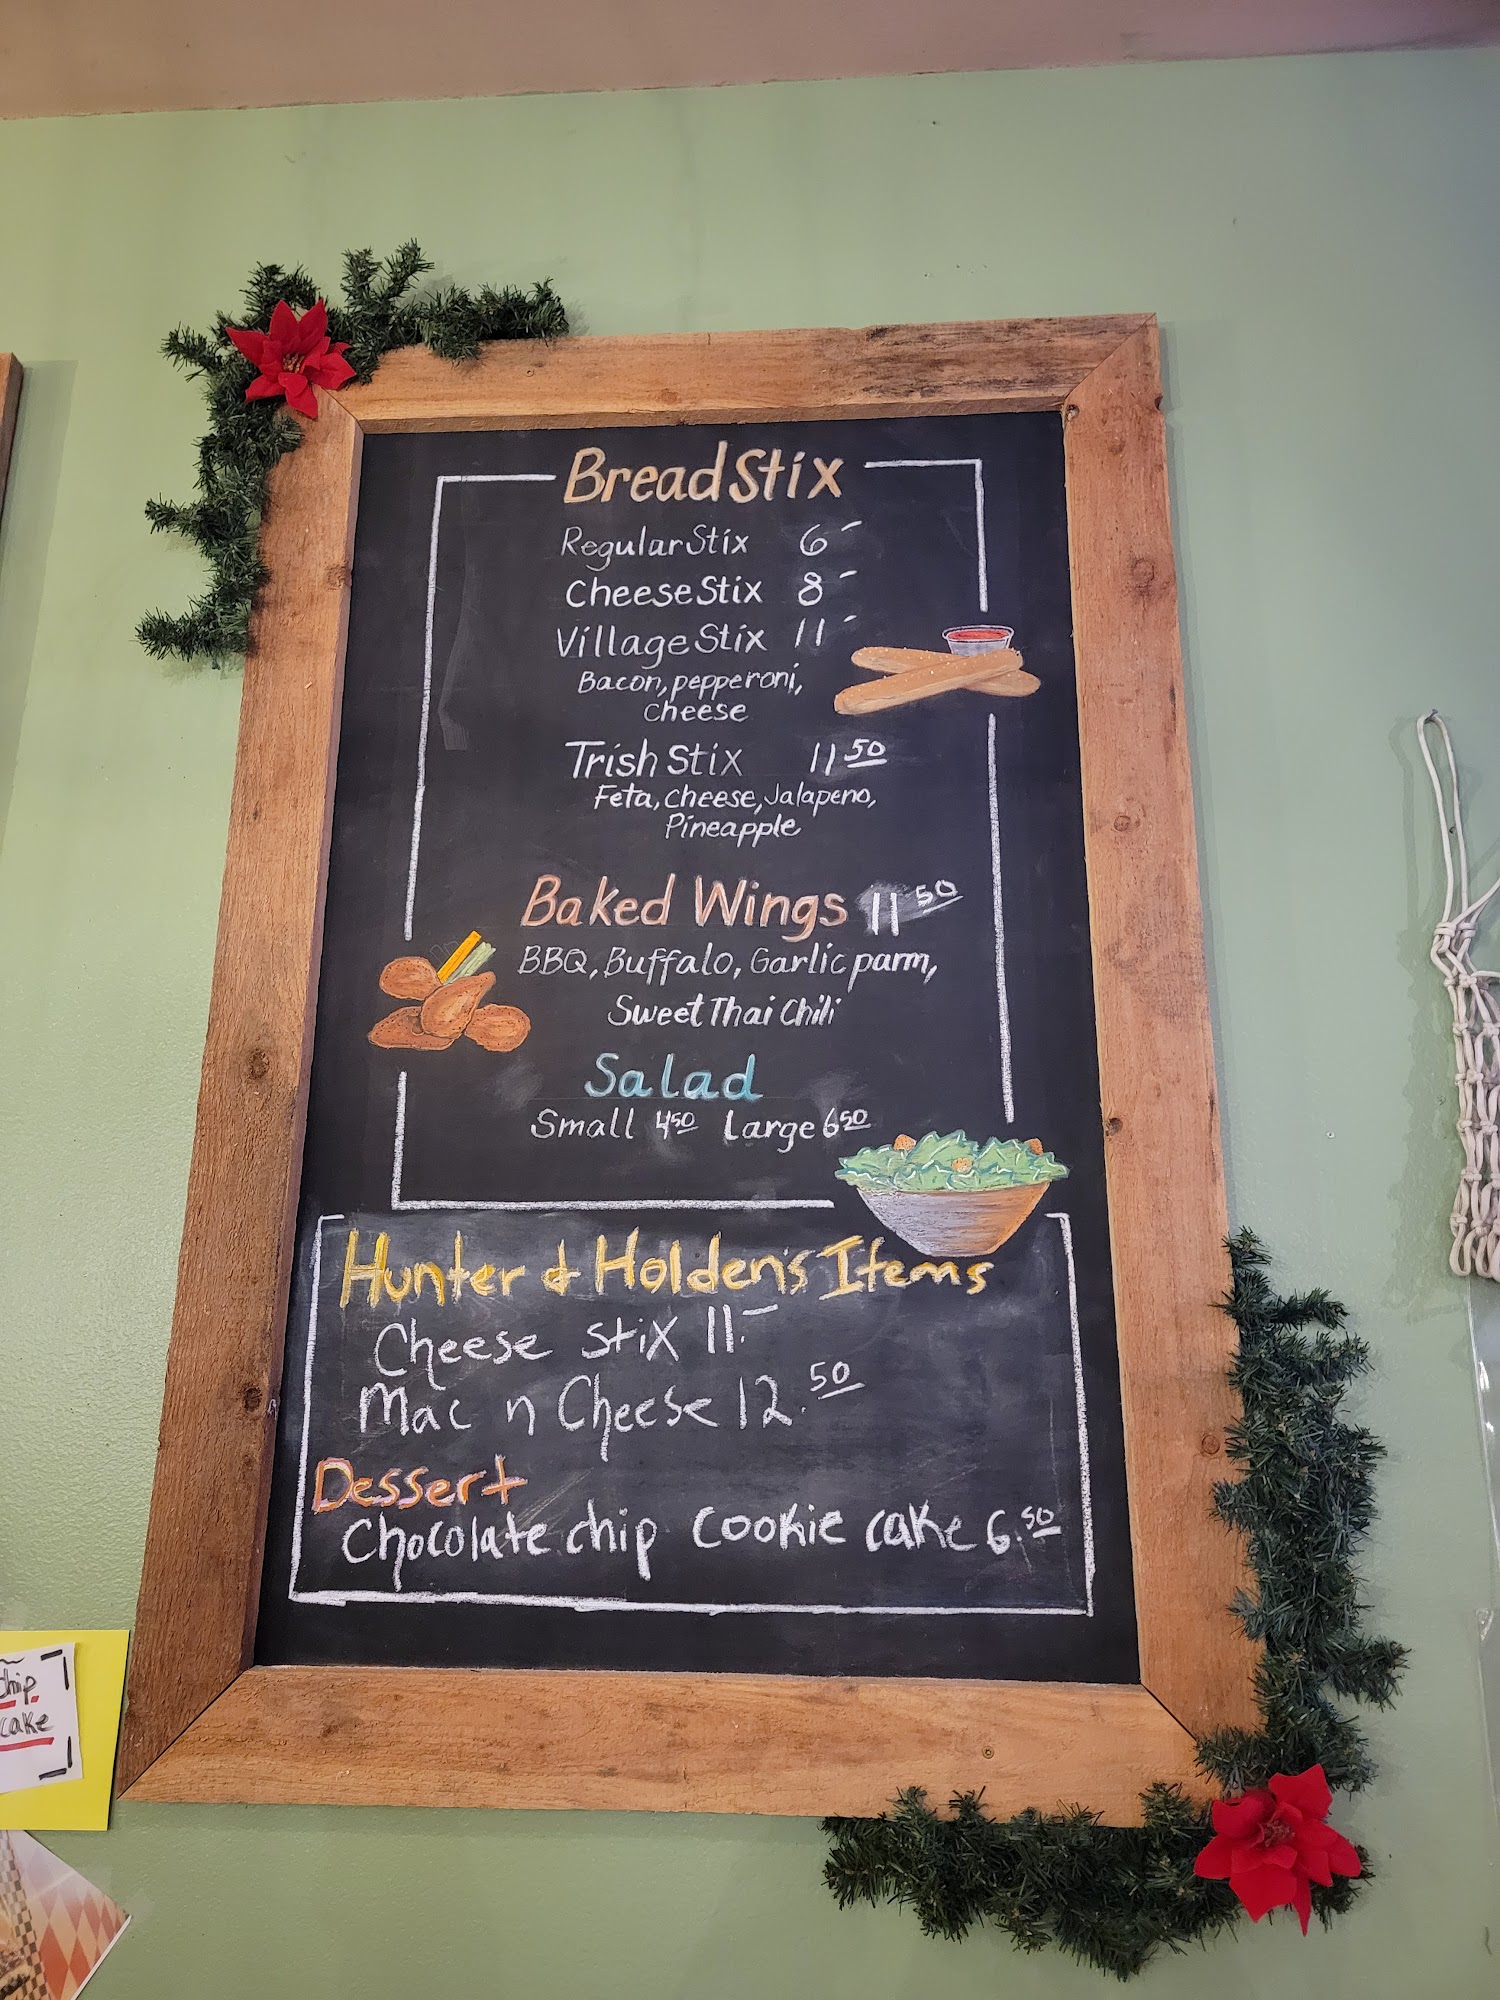 BreadStix
Regular Stix 6-
Cheese Stix 8-
Village Stix 11-
Bacon, pepperoni,
Cheese
Trish Stix 11 50
Feta, Cheese, Jalapeno,
Pineapple
Baked Wings 11 50
BBQ, Buffalo, Garlic parm,
Sweet Thai Chili
Salad
Small 4 50 Large 6 50
Hunter & Holden's Items
Cheese Stix 11.-
Mac n Cheese 12.50
Dessert
Chocolate chip cookie cake 6.50
chip
cake